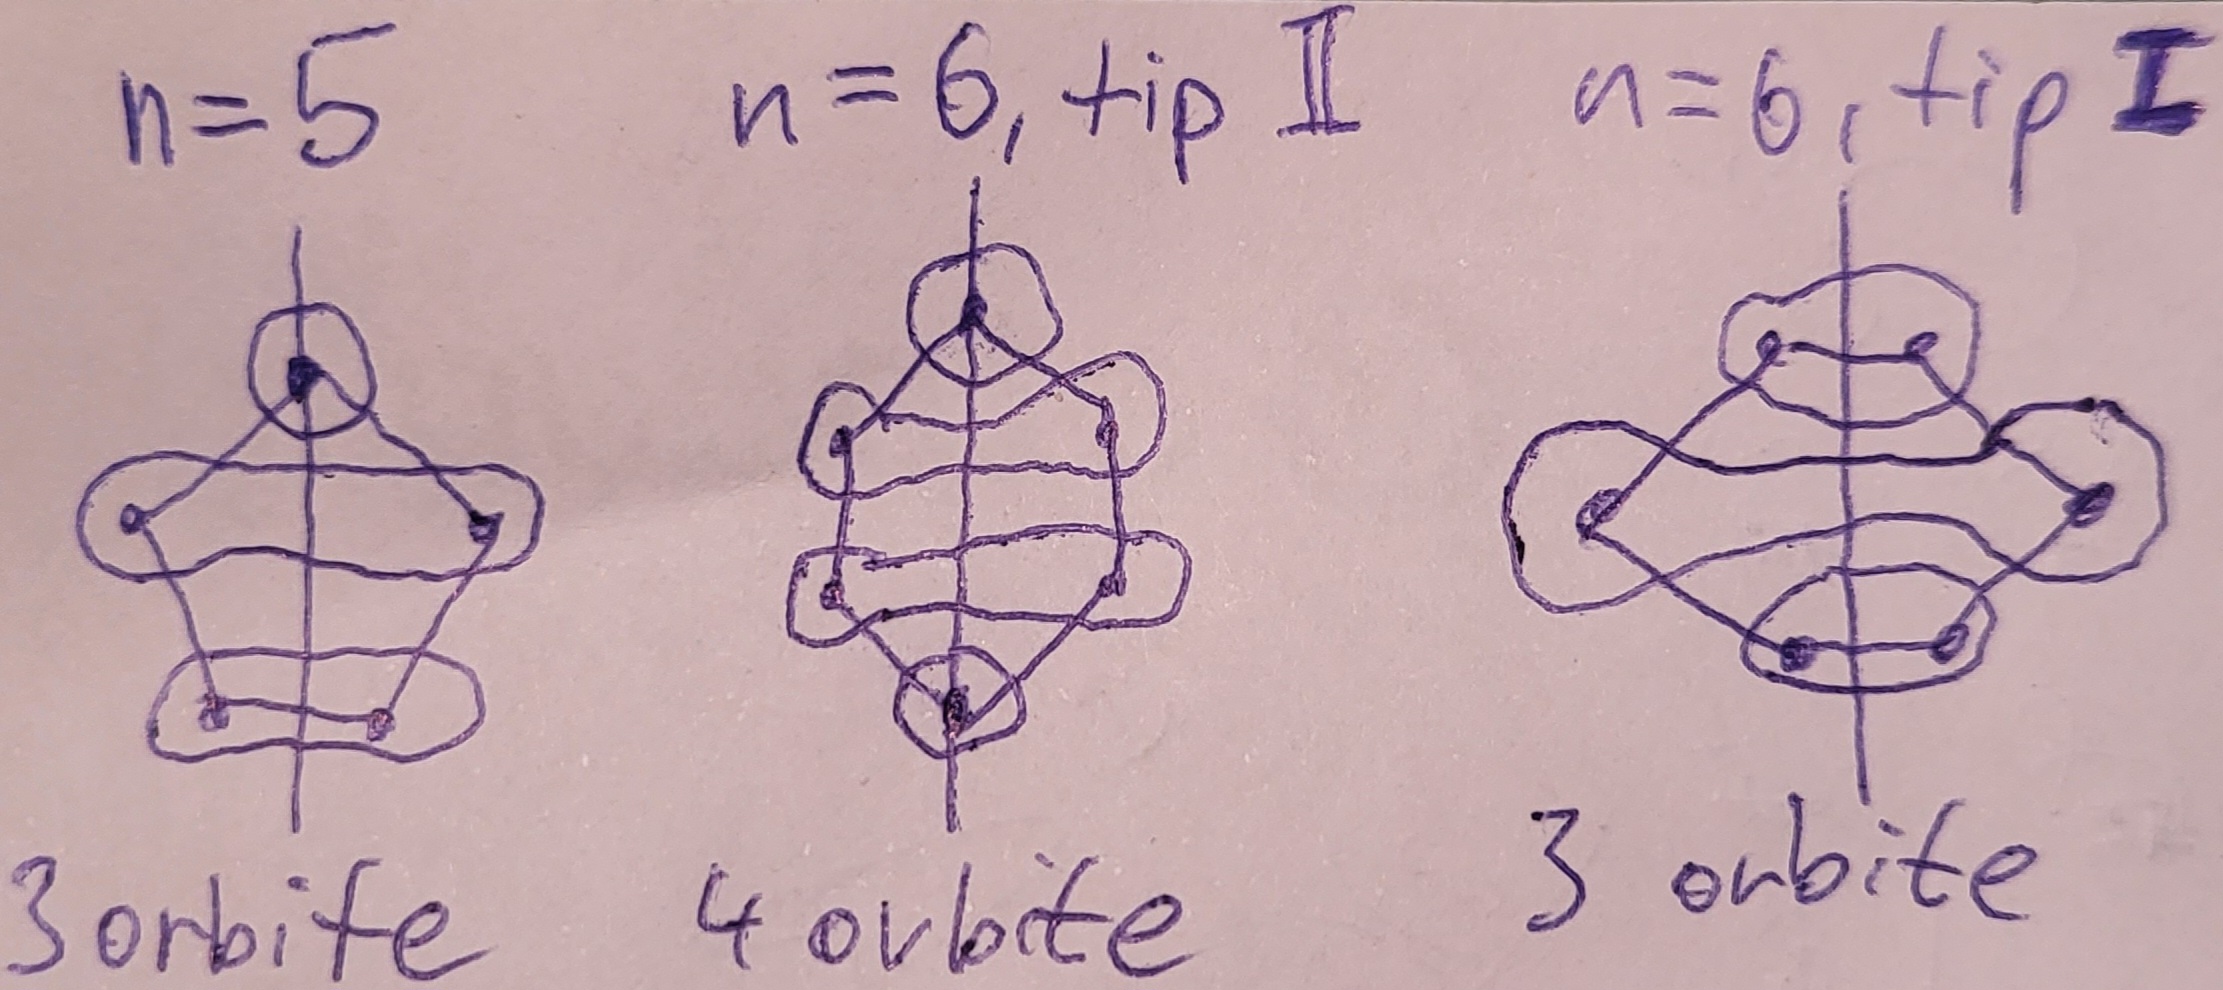 n=5
n=6, tip II
n=6, tip I
3 orbite
4 orbite
3 orbite